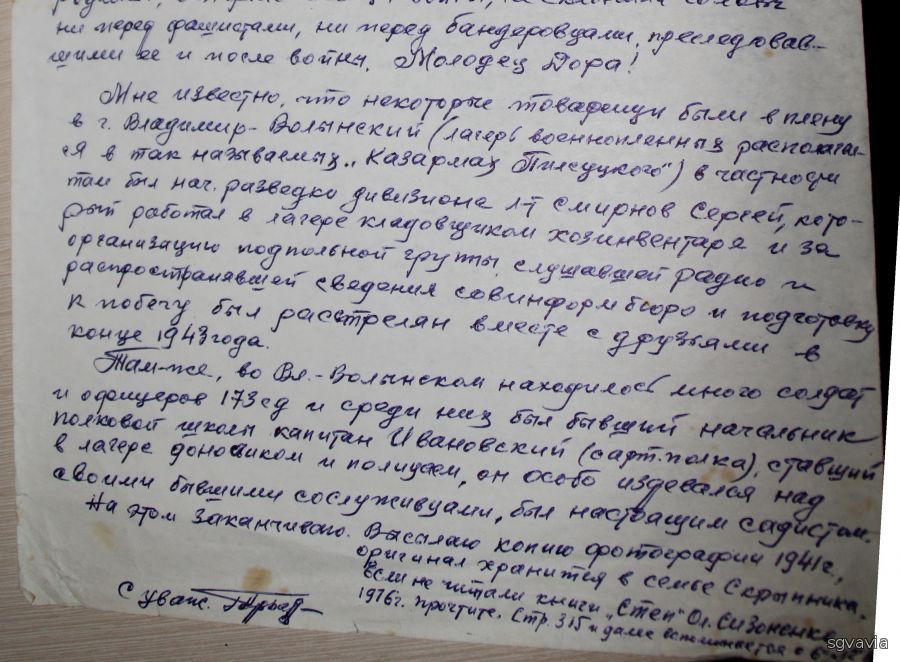 ни перед фашистами, ни перед бандеровцами, преследовав-
шими ее и после войны. Молодец Дора!
Мне известно, что некоторые товарищи были в плену
в г. Владимир-Волынский (лагерь военнопленных располагал-
ся в так называемых „Казармах Пилсуцкого") в частности
там был нач. разведки дивизиона л-т Смирнов Сергей, кото-
рый работал в лагере кладовщиком хозинвентаря и за
организацию подпольной группы, слушавшей радио и
распространявшей сведения совинформбюро и подготовку
к побегу был расстрелян вместе с друзьями в
конце 1943 года.
Там-же, во Вл.-Волынском находилось много солдат
и офицеров 173 сд и среди них был бывший начальник
полковой школы капитан Ивановский (с арт. полка), ставший
в лагере доносчиком и полицаем, он особо издевался над
своими бывшими сослуживцами, был настоящим садистом.
На этом заканчиваю. Высылаю копию фотографии 1941 г.,
оригинал хранится в семье Скрыпника.
Если не читали книги „Степ" Ол. Сизоненко
1976 г. прочтите. Стр. 315 и далее вспоминается о
С уваж.
sgvavia